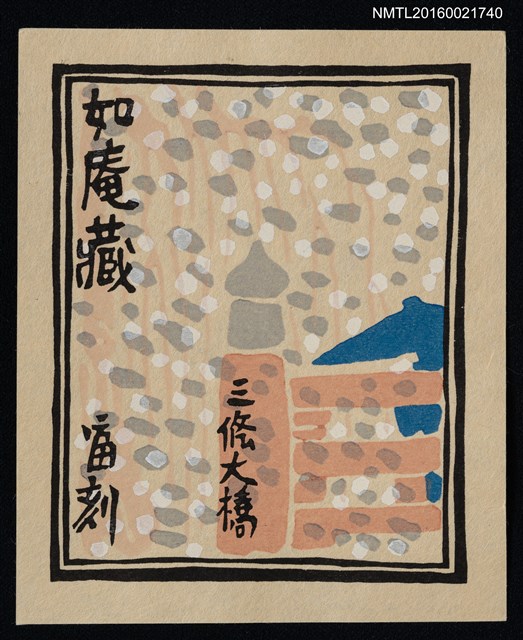 NMTL20160021740
如庵藏
三條大橋
刻